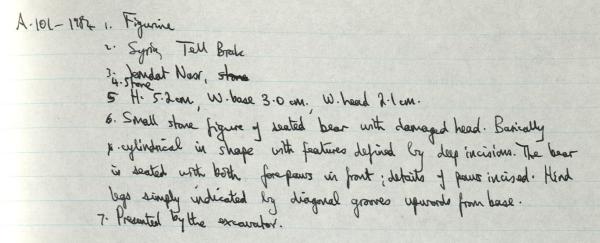 A.101-1982 1. Figurine
2. Syria, Tell Brak
3. Jemdat Nasr, stone
4. Stone
5 H. 5.2cm, W. base 3.0 cm, W. head 2.1cm.
6. Small stone figure of seated bear with damaged head. Basically
cylindrical in shape with features defined by deep incisions. The bear
is seated with both forepaws in front; details of paws incised. Hind
legs simply indicated by diagonal grooves upwards from base.
7. Presented by the excavator.